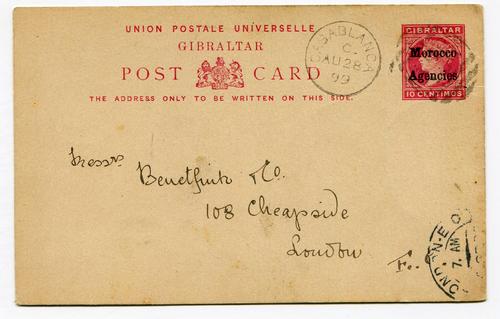 UNION POSTALE UNIVERSELLE
GIBRALTAR
POST CARD
THE ADDRESS ONLY TO BE WRITTEN ON THIS SIDE.
CASABLANCA
C
AU 28
99
GIBRALTAR
Morocco
Agencies
10 CENTIMOS
Messrs
Benetfink & Co.
108 Cheapside
London
LONDON. E
7. AM